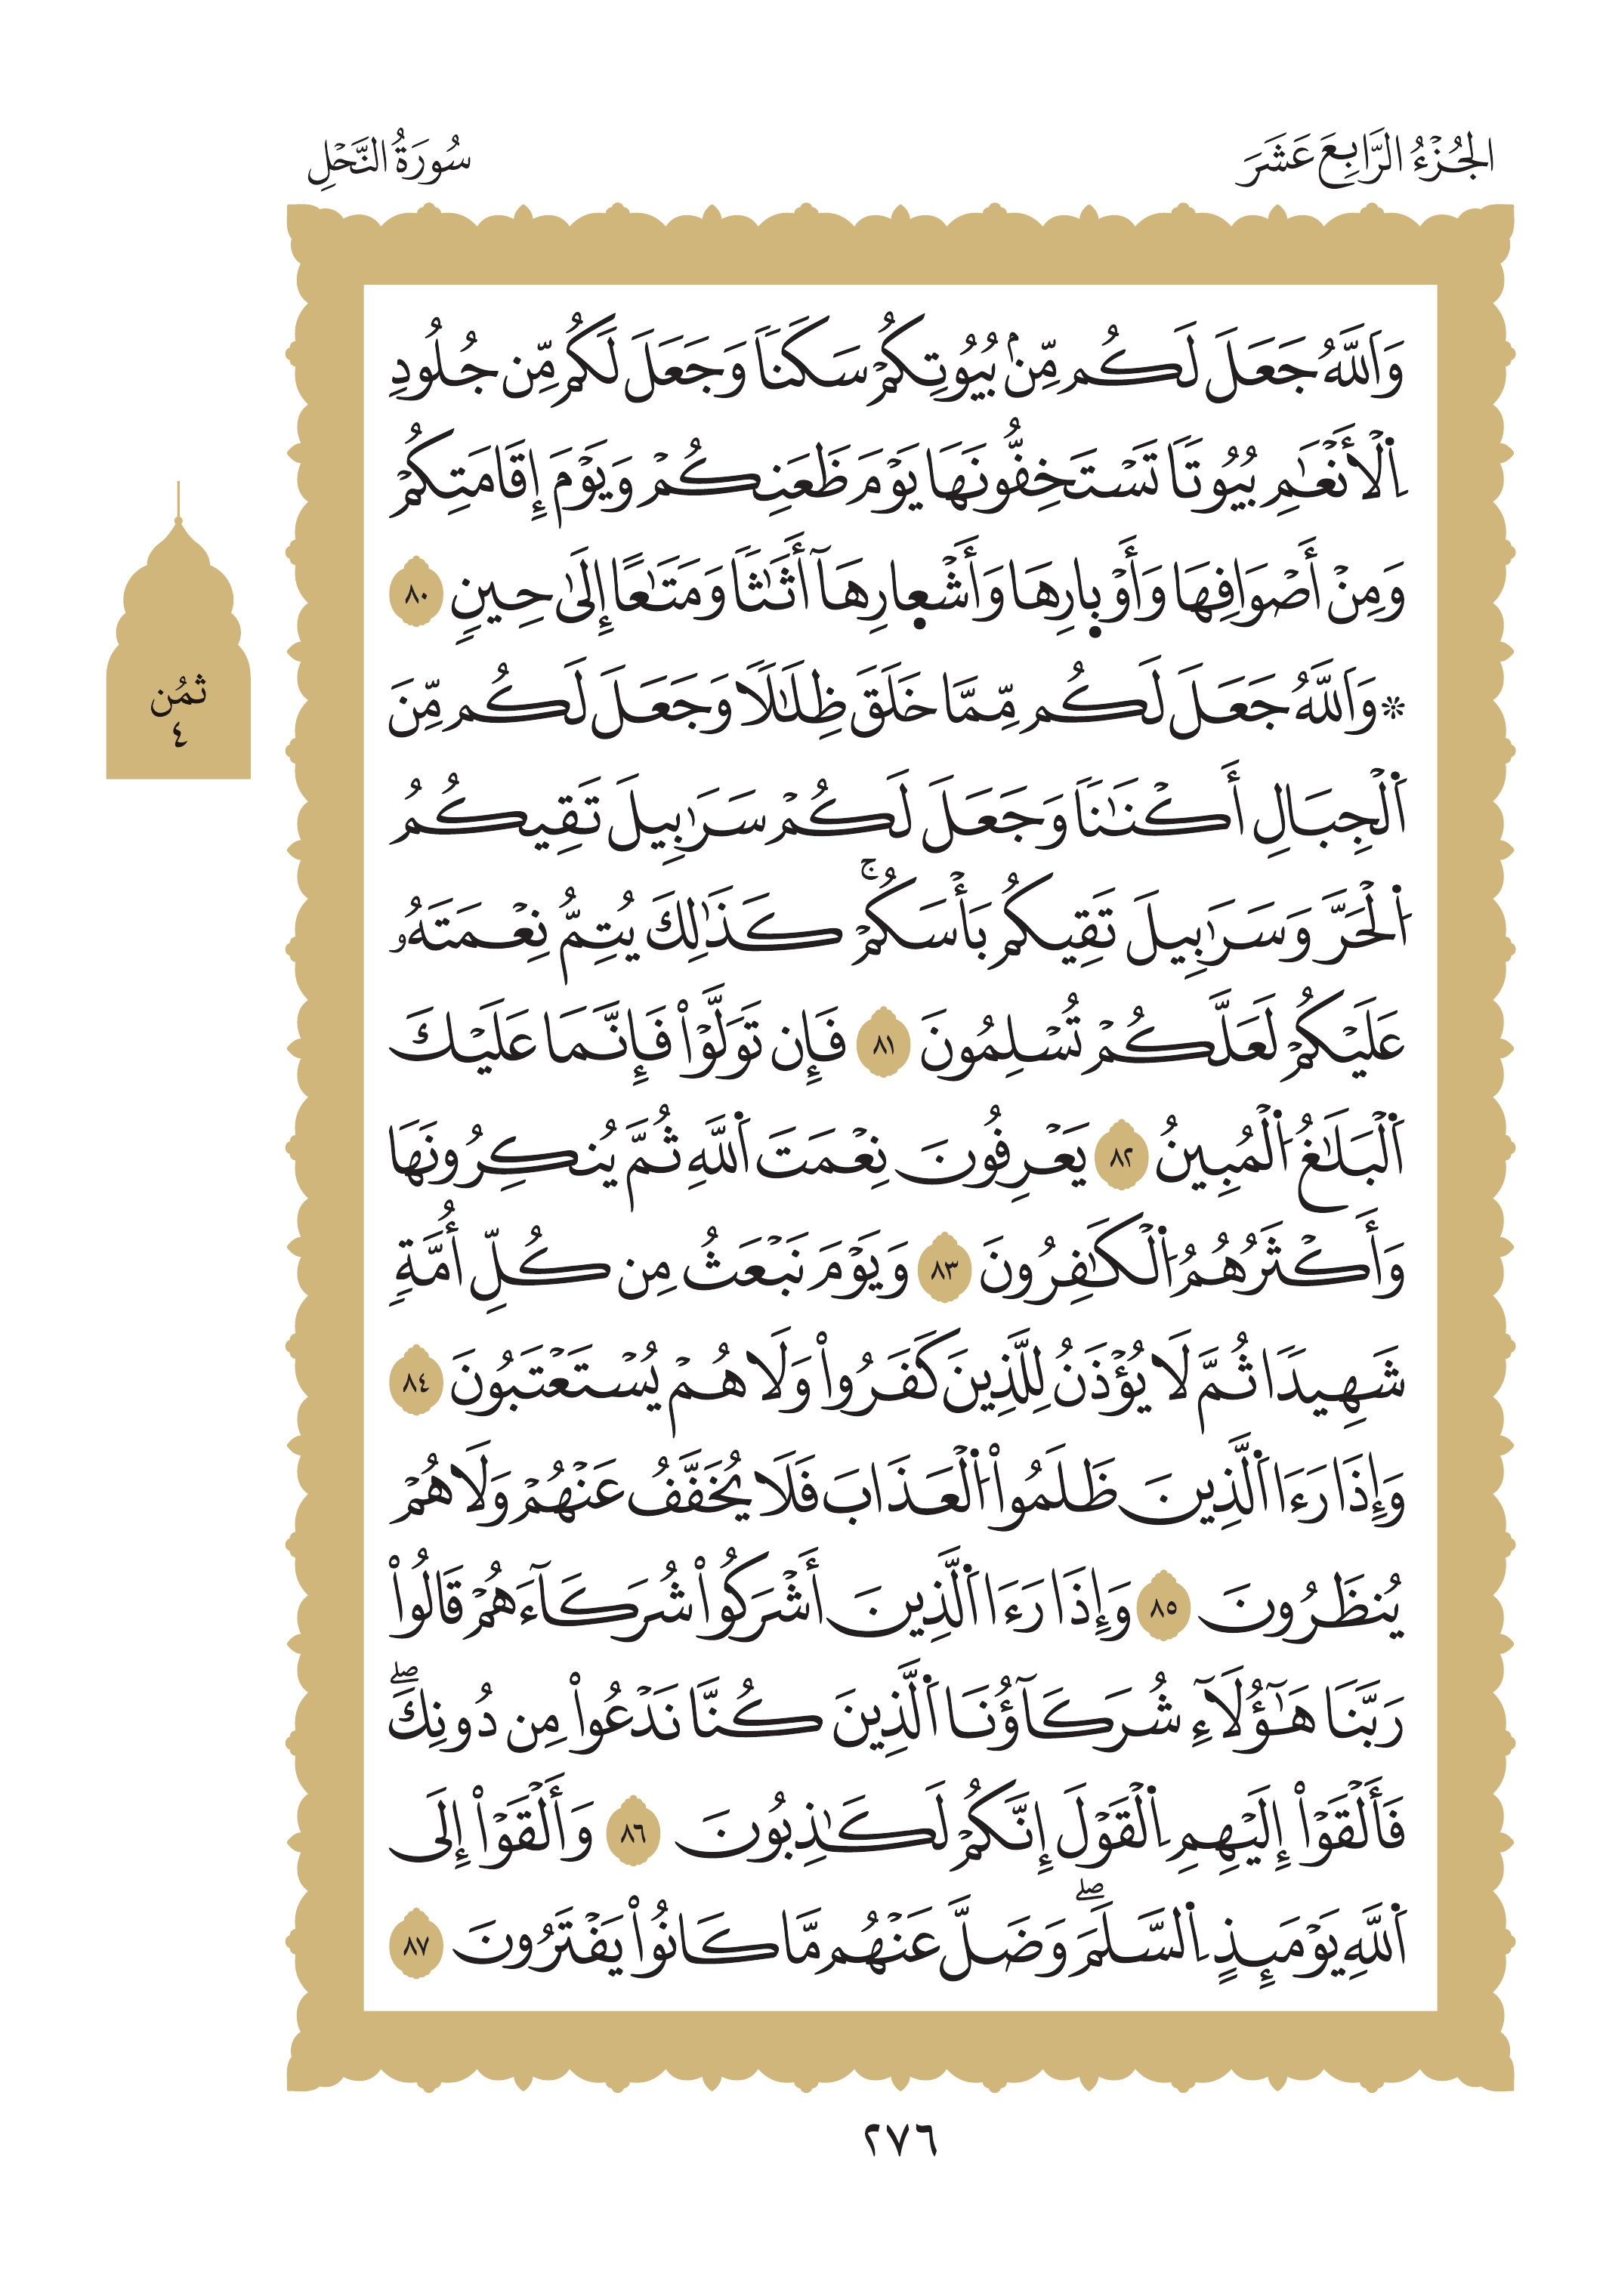 الجُزْءُ الرَّابِعَ عَشَرَ
سُورَةُ النَّحْلِ
وَاَللَّهُ جَعَلَ لَكُم مِّنۢ بُيُوتِكُمْ سَكَنٗا وَجَعَلَ لَكُم مِّن جُلُودِ
اِ۬لْأَنْعَٰمِ بُيُوتٗا تَسْتَخِفُّونَهَا يَوْمَ ظَعَنِكُمْ وَيَوْمَ إِقَامَتِكُمْ
وَمِنْ أَصْوَافِهَا وَأَوْب۪ارِهَا وَأَشْع۪ارِهَآ أَثَٰثٗا وَمَتَٰعًا إِلَىٰ حِينٖ ٨٠
۞وَاَللَّهُ جَعَلَ لَكُم مِّمَّا خَلَقَ ظِلَٰلٗا وَجَعَلَ لَكُم مِّنَ
اَ۬لْجِبَالِ أَكْنَٰنٗا وَجَعَلَ لَكُمْ سَرَٰبِيلَ تَقِيكُمُ
اُ۬لْحَرَّ وَسَرَٰبِيلَ تَقِيكُم بَأْسَكُمْۚ كَذَٰلِكَ يُتِمُّ نِعْمَتَهُۥ
عَلَيْكُمْ لَعَلَّكُمْ تُسْلِمُونَ ٨١ فَإِن تَوَلَّوْاْ فَإِنَّمَا عَلَيْكَ
اَ۬لْبَلَٰغُ اُ۬لْمُبِينُ ٨٢ يَعْرِفُونَ نِعْمَتَ اَ۬للَّهِ ثُمَّ يُنكِرُونَهَا
وَأَكْثَرُهُمُ اُ۬لْكَٰفِرُونَ ٨٣ وَيَوْمَ نَبْعَثُ مِن كُلِّ أُمَّةٖ
شَهِيدٗا ثُمَّ لَا يُؤْذَنُ لِلَّذِينَ كَفَرُواْ وَلَا هُمْ يُسْتَعْتَبُونَ ٨٤
وَإِذَا رَءَا اَ۬لَّذِينَ ظَلَمُواْ اُ۬لْعَذَابَ فَلَا يُخَفَّفُ عَنْهُمْ وَلَا هُمْ
يُنظَرُونَ ٨٥ وَإِذَا رَءَا اَ۬لَّذِينَ أَشْرَكُواْ شُرَكَآءَهُمْ قَالُواْ
رَبَّنَا هَٰٓؤُلَآءِ شُرَكَآؤُنَا اَ۬لَّذِينَ كُنَّا نَدْعُواْ مِن دُونِكَۖ
فَأَلْقَوْاْ إِلَيْهِمِ اِ۬لْقَوْلَ إِنَّكُمْ لَكَٰذِبُونَ ٨٦ وَأَلْقَوْاْ إِلَى
اَ۬للَّهِ يَوْمَئِذٍ اِ۬لسَّلَمَۖ وَضَلَّ عَنْهُم مَّا كَانُواْ يَفْتَرُونَ ٨٧
ثُمُن
٤
٢٧٦